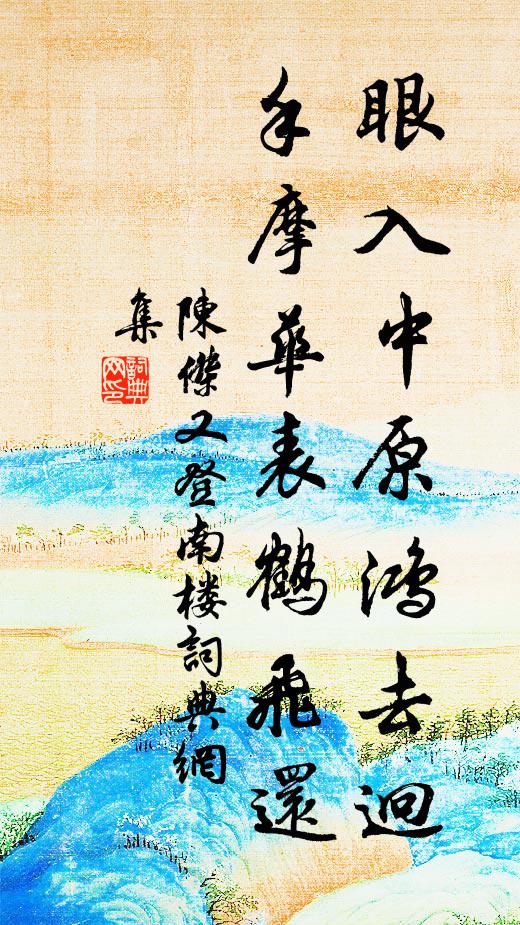 眼入中原鴻去迥
手摩華表鶴飛還
陳傑又登南楼詞典網
集
詞典網印